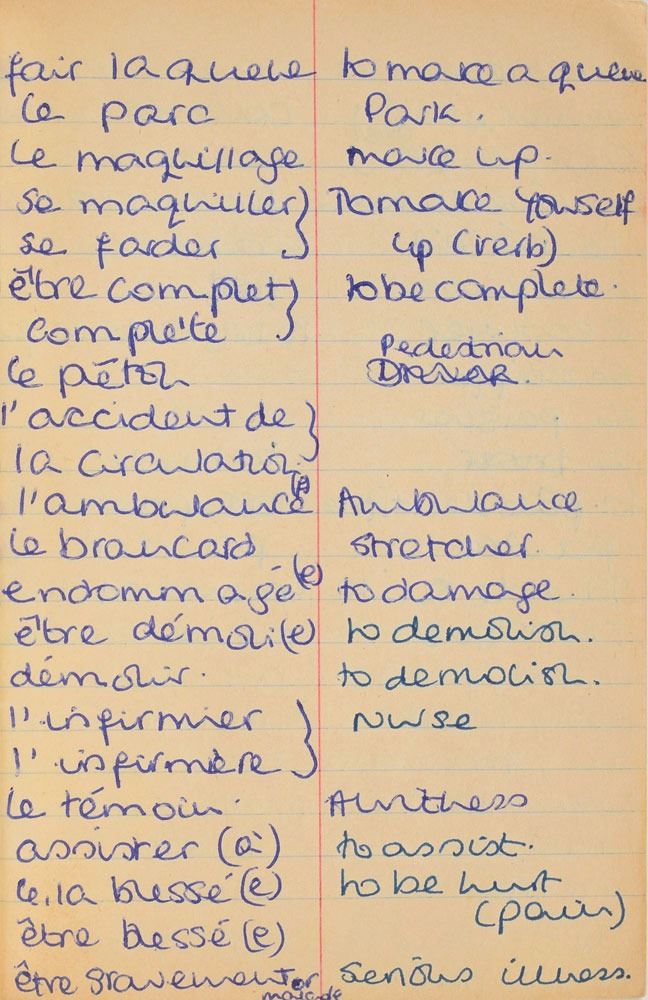 fair la queue to make a queue
le parc Park.
le maquillage make up.
se maquiller } To make Yourself
se farder up (verb)
être complet } to be complete.
complète
Pedestrian
le péton
l'accident de }
la circulation.
l'ambulance Ambulance
le brancard stretcher.
endommagé (e) to damage.
être démoli(e) to demolish.
démolir. to demolish.
l'infirmier } Nurse
l'infirmière
le témoin. A witness
assister (à) to assist.
le, la blessé (e) to be hurt
(pain)
être blessé (e)
être gravement or serious illness.
malade